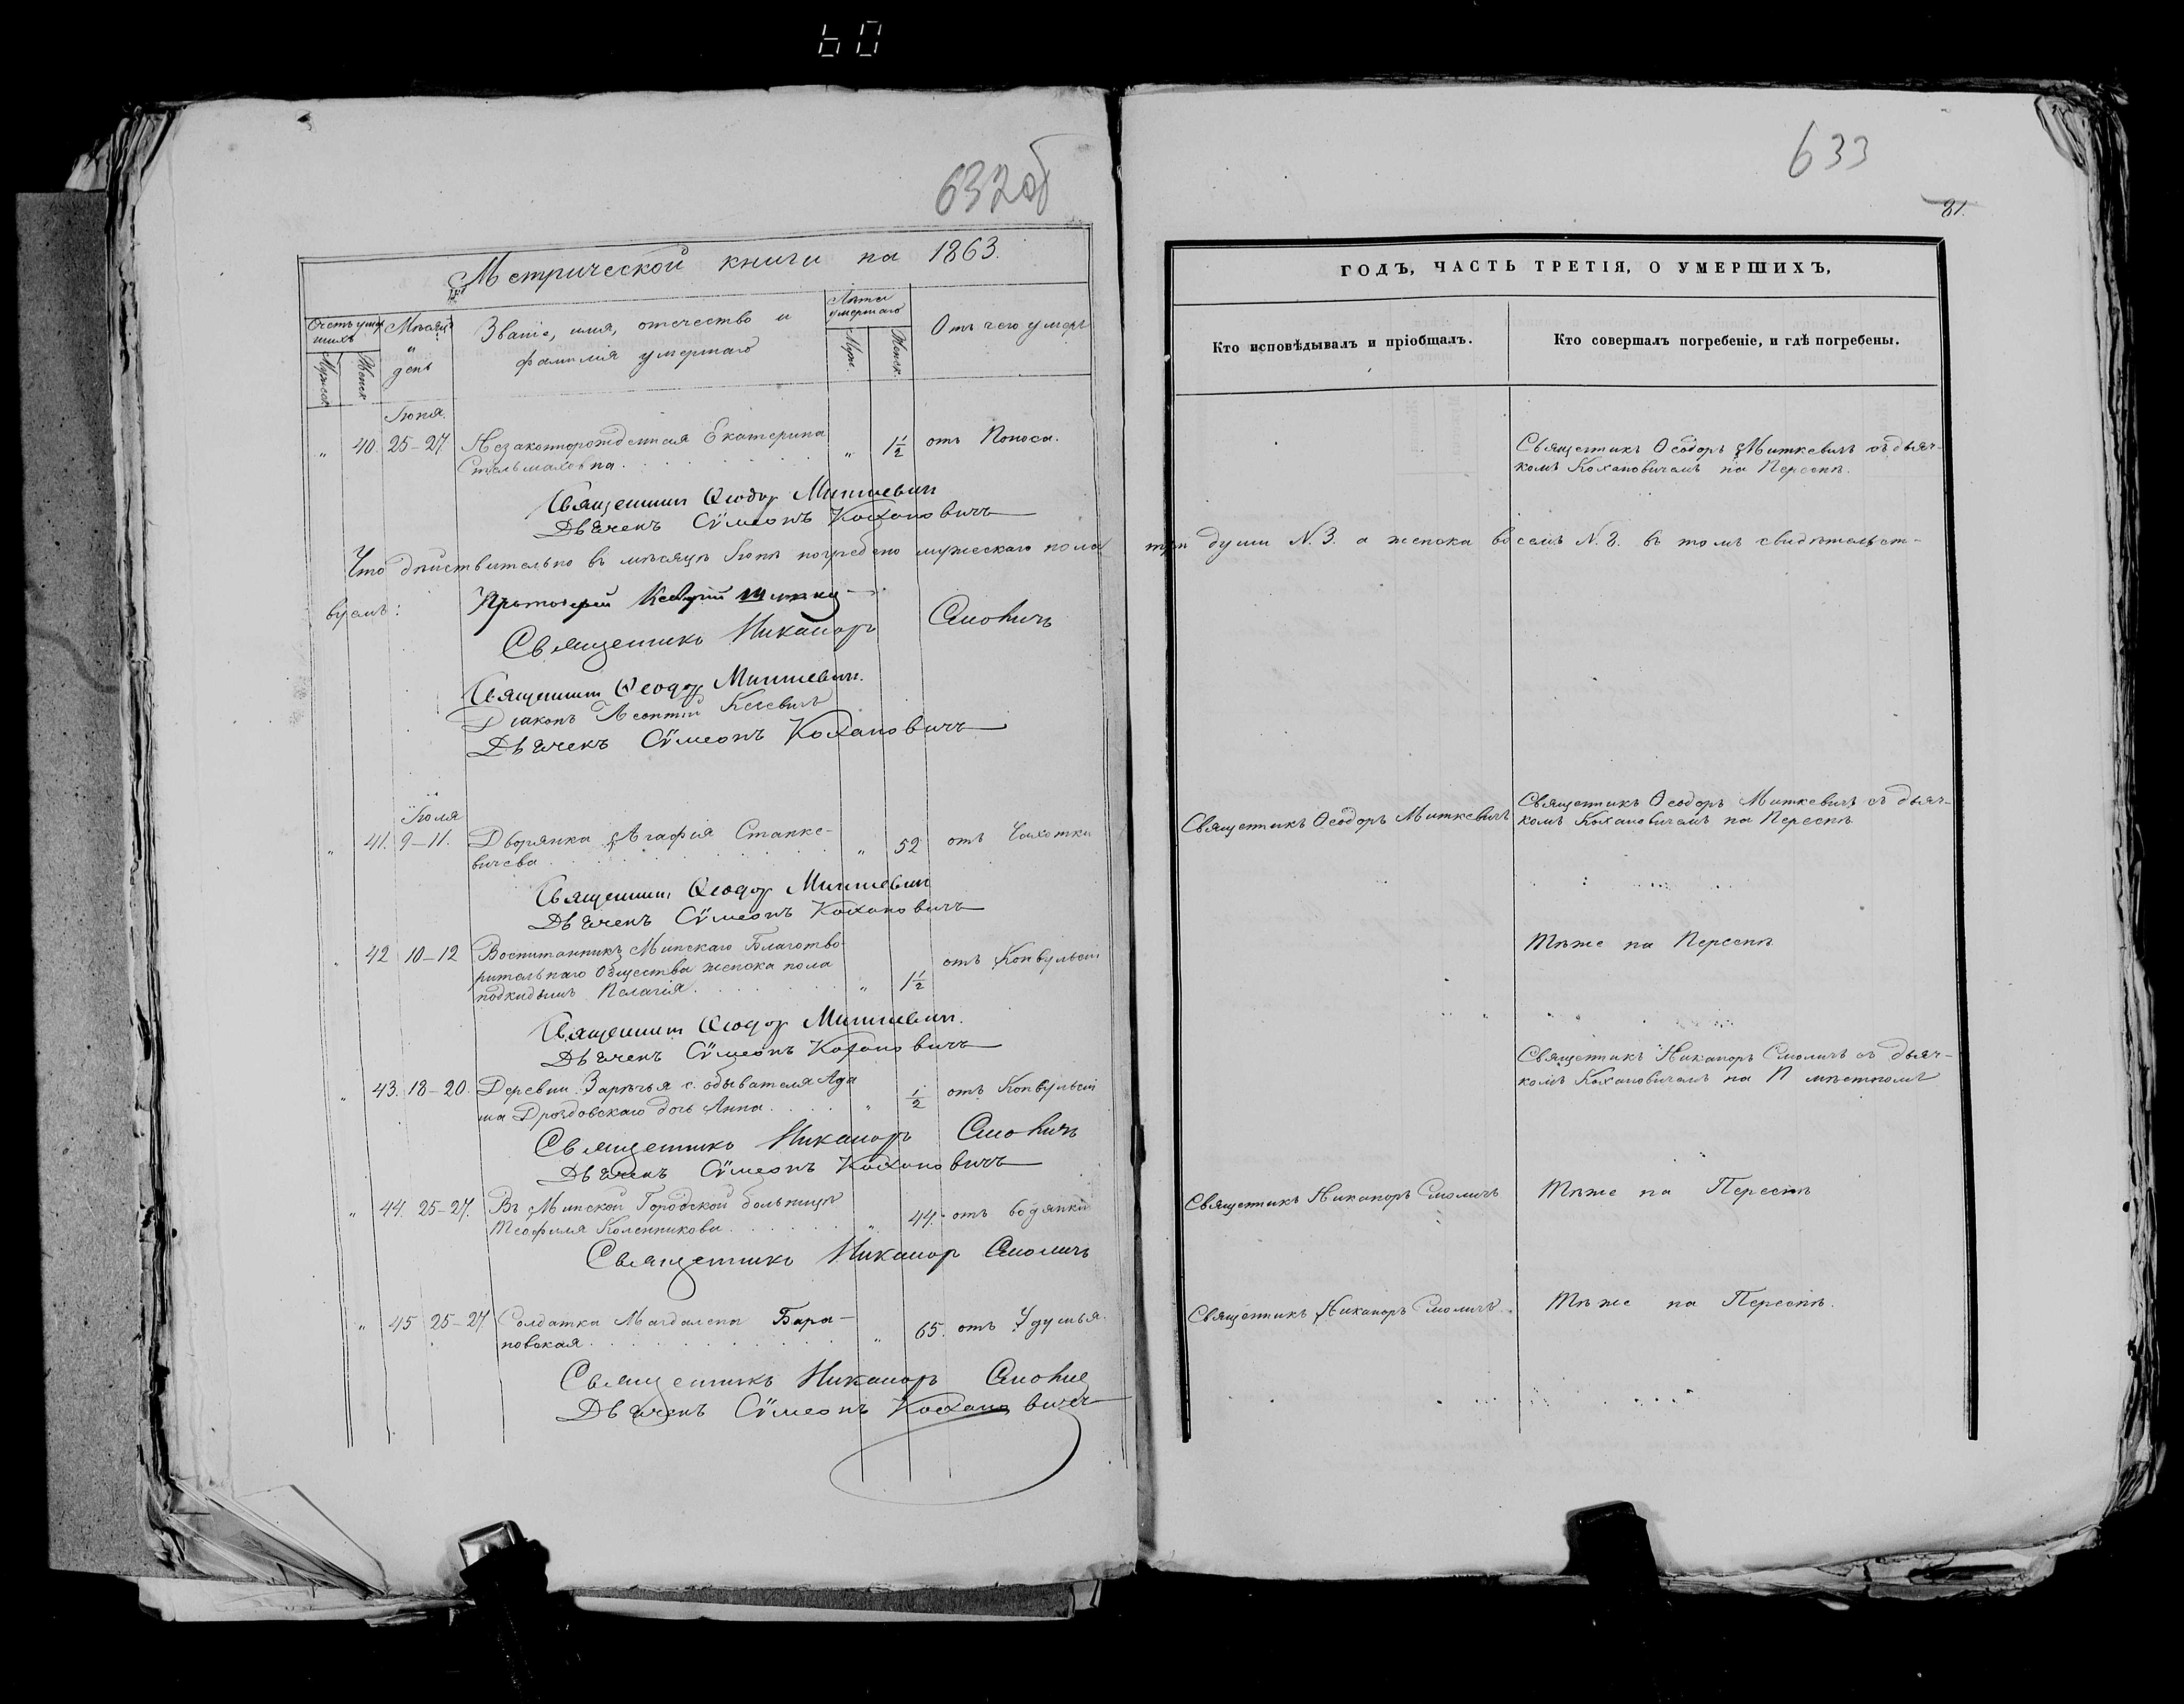 60
632об
Метрической книги на 1863.
Счетъ умершихъ
Мужеск.
Женск.
Мѣсяцъ и день
Званіе, имя, отечество и
фамилія умершаго
Лѣта умершаго
Муж.
Женск.
Отъ чего умеръ
Іюня.
„ 40. 25-27. Незаконнорожденная Екатерина „ 1½ отъ Поноса.
Стельмаховна
Священникъ Ѳеодоръ Миткевичъ
Дьячекъ Сѵмеонъ Кохановичъ
Что дѣйствительно въ мѣсяцѣ Іюнѣ погребено мужескаго пола
вуемъ: Протоіерей
Священникъ Никаноръ Смоличъ
Священникъ Ѳеодоръ Миткевичъ.
Діаконъ Леонтій
Дьячекъ Сѵмеонъ Кохановичъ
Іюля
„ 41. 9-11. Дворянка Агафія Станке- „ 52 отъ Чахотки
вичева
Священникъ Ѳеодоръ Миткевичъ
Дьячекъ Сѵмеонъ Кохановичъ
„ 42 10-12 Воспитанникъ Минскаго Благотво-
рительнаго Общества женска пола отъ Конвульсіи
подкидышъ Пелагія „ 1½
Священникъ Ѳеодоръ Миткевичъ.
Дьячекъ Сѵмеонъ Кохановичъ
„ 43. 18-20. Деревни Зарѣчья с. обывателя Ада
ма Дроздовскаго дочь Анна „ ½ отъ Конвульсіи
Священникъ Никаноръ Смоличъ
Дьячекъ Сѵмеонъ Кохановичъ
„ 44. 25-27. Въ Минской Городской больницѣ
Теофиля Коленникова „ 44. отъ водянки
Священникъ Никаноръ Смоличъ
„ 45 25-27 Солдатка Магдалена Бара-
новская „ 65. отъ Удушья.
Священникъ Никаноръ Смоличъ
Дьячекъ Сѵмеонъ Кохановичъ
633
81.
ГОДЪ, ЧАСТЬ ТРЕТІЯ, О УМЕРШИХЪ,
Кто исповѣдывалъ и пріобщалъ.
Кто совершалъ погребеніе, и гдѣ погребены.
Священникъ Ѳеодоръ Миткевичъ съ дьяч-
комъ Кохановичемъ на Переспѣ.
три души N. 3. а женска восемь N. 8. въ томъ свидѣтельст-
Священникъ Ѳеодоръ Миткевичъ
Священникъ Ѳеодоръ Миткевичъ съ дьяч-
комъ Кохановичемъ на Переспѣ
Тѣже на Переспѣ
Священникъ Никаноръ Смоличъ съ дьяч-
комъ Кохановичемъ на П мѣстномъ
Священникъ Никаноръ Смоличъ
Тѣже на Переспѣ
Священникъ Никаноръ Смоличъ.
Тѣже на Переспѣ.